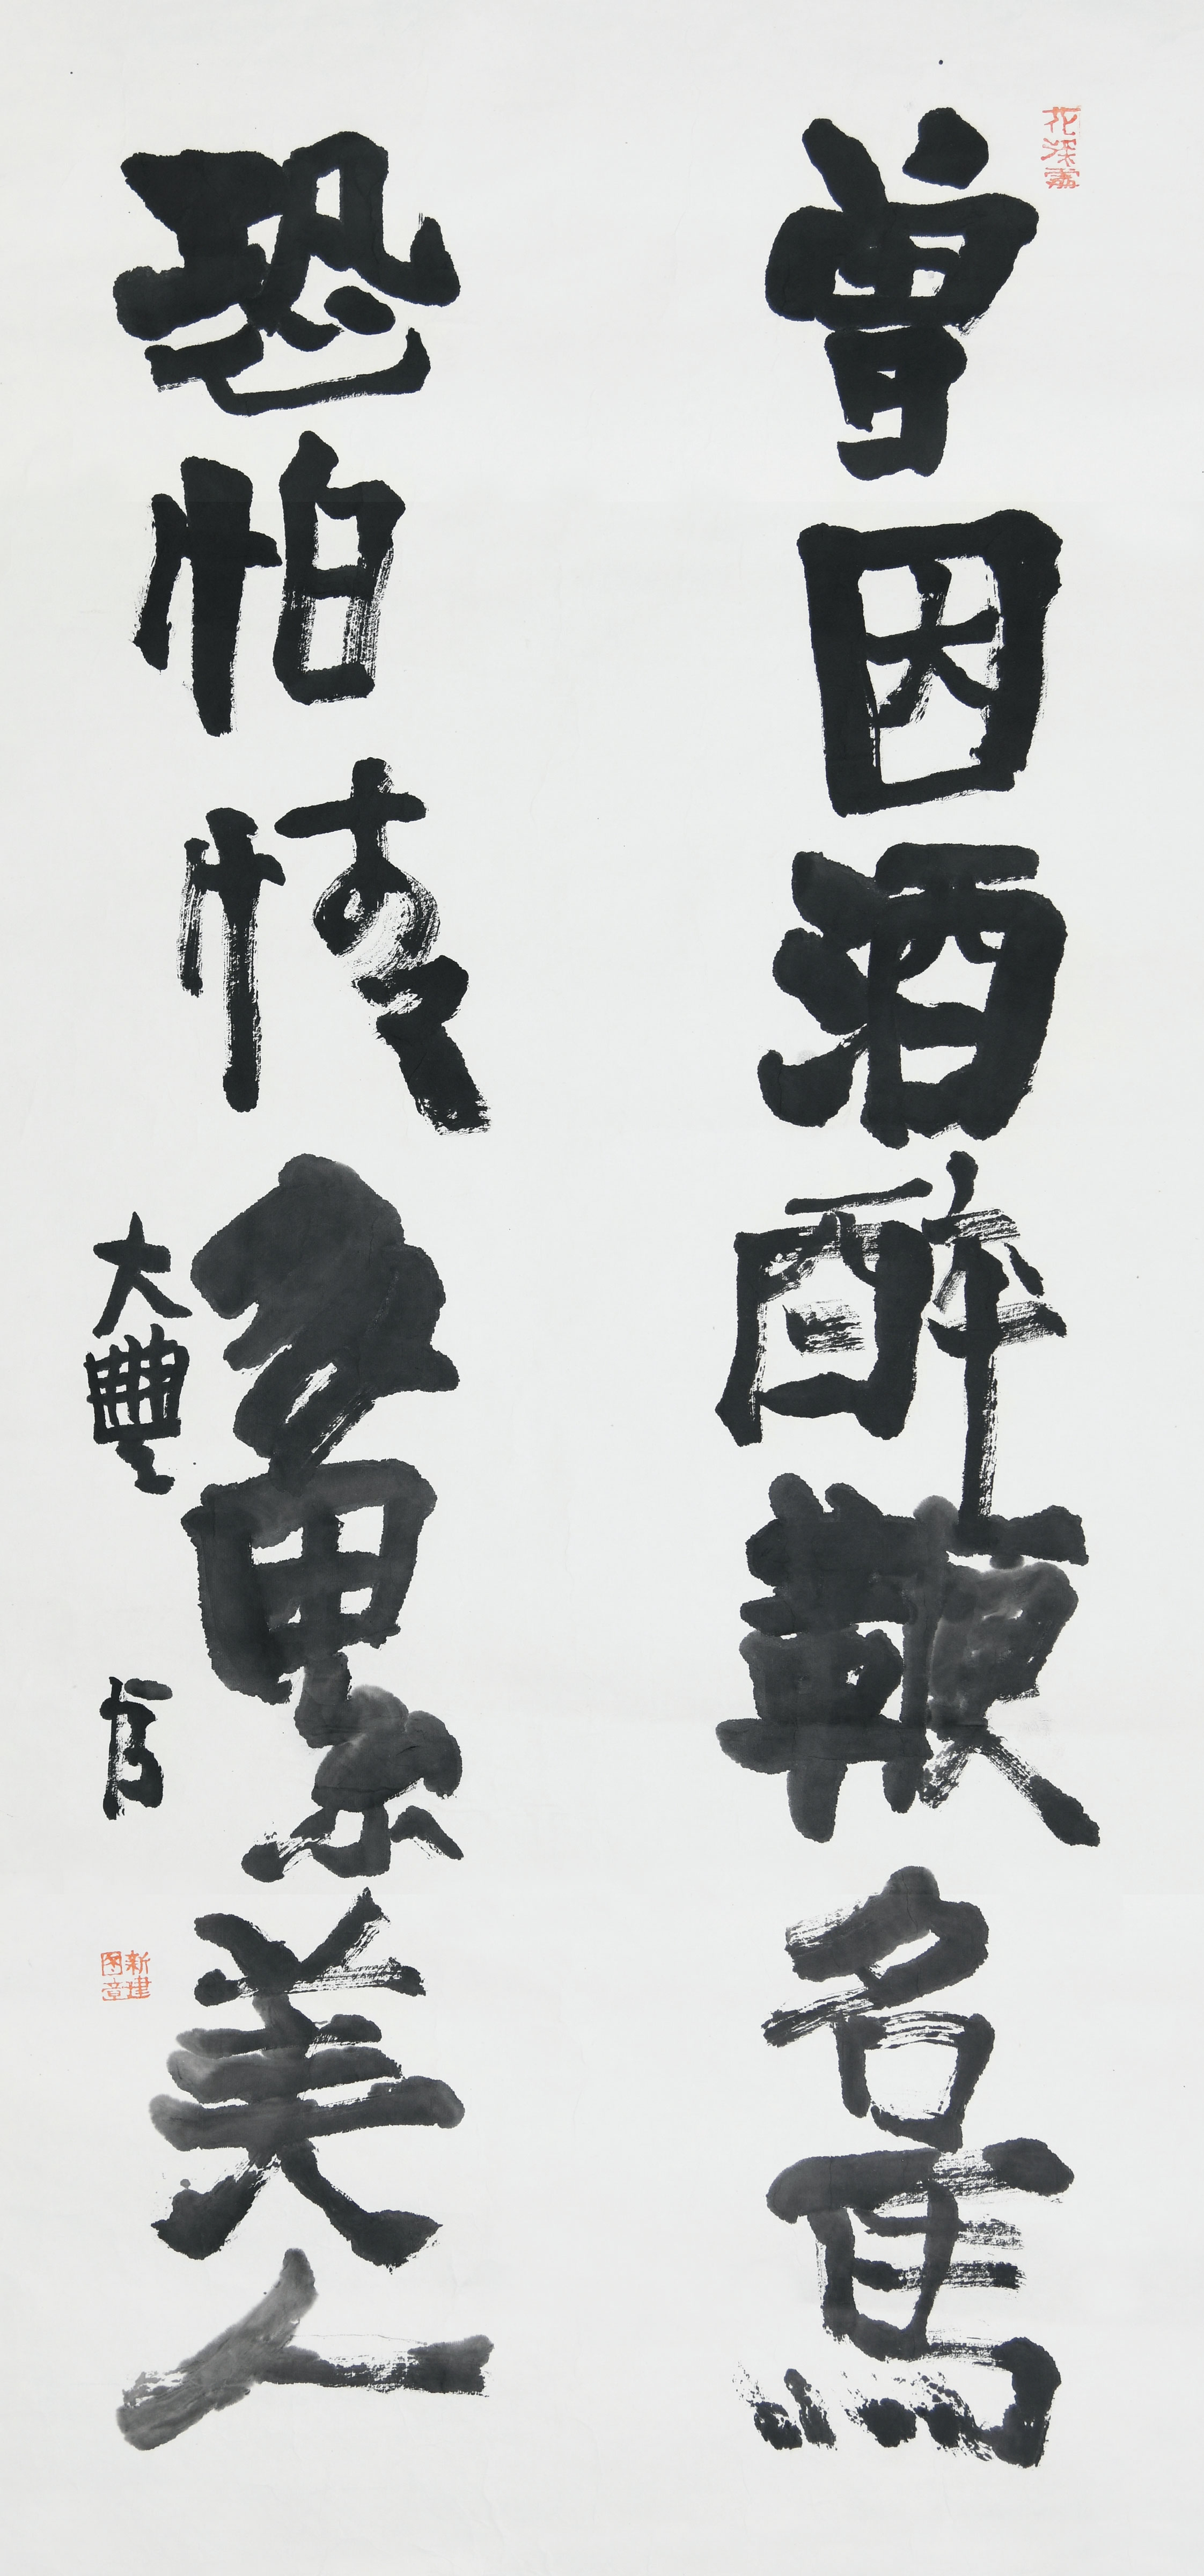 曾因酒醉鞭名馬
恐怕情多累美人
大豐
官
花深處
新建
图章